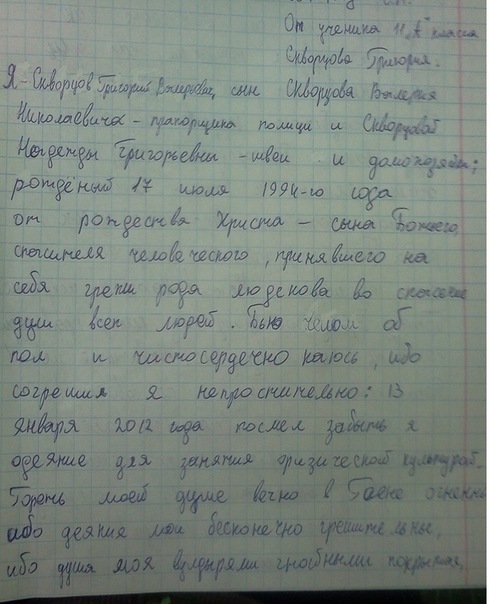 От ученика 11 „А" класса
Скворцова Григория.
Я - Скворцов Григорий Валерьевич, сын Скворцова Валерия
Николаевича - прапорщика полиции и Скворцовой
Надежды Григорьевны - швеи и домохозяйки;
рождёный 17 июля 1994-го года
от рождества Христа - сына Божьего,
спасителя человеческого, принявшего на
себя грехи рода людскова во спасение
душ всех людей. Бью челом об
пол и чистосердечно каюсь, ибо
согрешил я непростительно: 13
января 2012 года посмел забыть я
одеяние для занятия физической культурой.
Гореть моей душе вечно в Гаене огненной
ибо деяния мои бесконечно грешительны,
ибо душа моя волдырями гнобными покрытая,